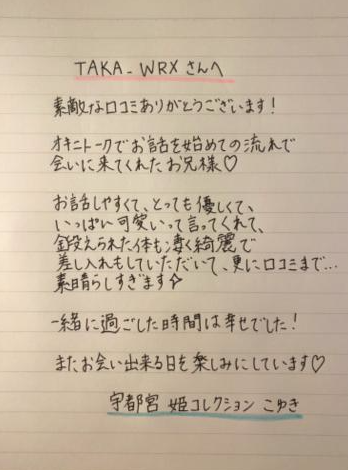 TAKA_WRXさんへ
素敵な口コミありがとうございます！
オキニトークでお話を始めての流れで
会いに来てくれたお兄様♡
お話しやすくて、とっても優しくて、
いっぱい可愛いって言ってくれて、
鍛えられた体も凄く綺麗で
差し入れもしていただいて、更に口コミまで…
素晴らしすぎます☆
一緒に過ごした時間は幸せでした！
またお会い出来る日を楽しみにしています♡
宇都宮 姫コレクション こゆき